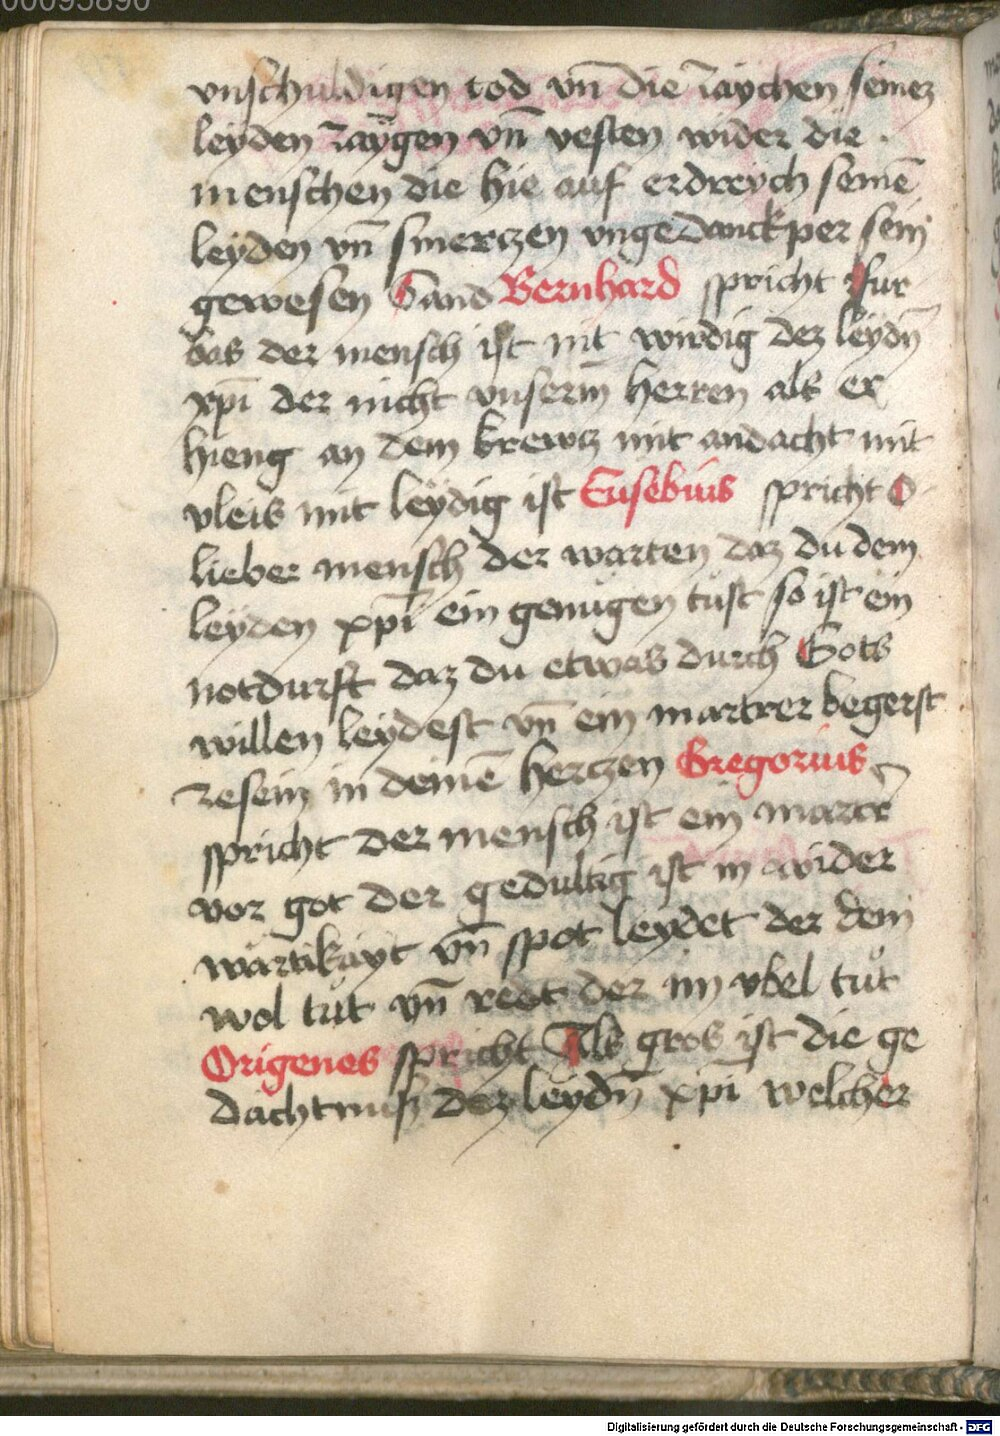 00095890
vnschuldigen tod vn̄ die zaychen seinez
leyden zaygen vn̄ vesten wider die
menschen die hie auf erdreych seinē
leyden vn̄ smerczen vngedanckper sein
gewesen Sand Bernhard spricht Fur
bas der mensch ist nit wirdig dez leydn̄
xp̄i der nicht vnserm herren als er
hieng an dem krewcz mit andacht mit
vleis mit leydig ist Eusebius spricht O
lieber mensch der warten daz du dem
leyden xp̄i ein genugen tust so ist ein
notdurft daz du etwas durch Gots
willen leydest vn̄ ein martrer begerst
zesein in deinē herczen Gregorius
spricht der mensch ist ein martrer
vor got der gedultig ist in wider
wartikayt vn̄ spot leydet der dem
wol tut vn̄ redt der im vbel tut
Origenes spricht Als gros ist die ge
dachtnuß dez leydn̄ xp̄i welcher
Digitalisierung gefördert durch die Deutsche Forschungsgemeinschaft - DFG